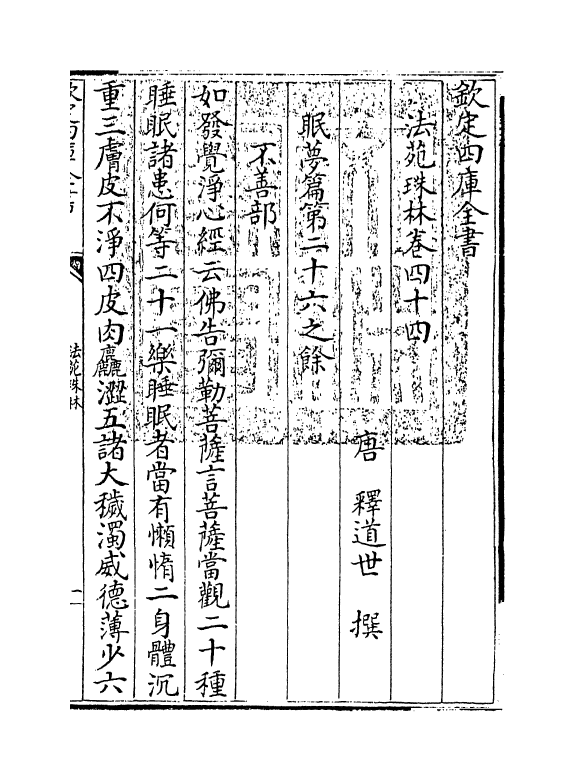 欽定四庫全書
法苑珠林卷四十四
唐 釋道世 撰
眠夢篇第二十六之餘
不善部
如發覺淨心經云佛告彌勒菩薩言菩薩當觀二十種
睡眠諸患何等二十一樂睡眠者當有懶惰二身體沉
重三膚皮不淨四皮肉麤澀五諸大穢濁威德薄少六
法苑珠林